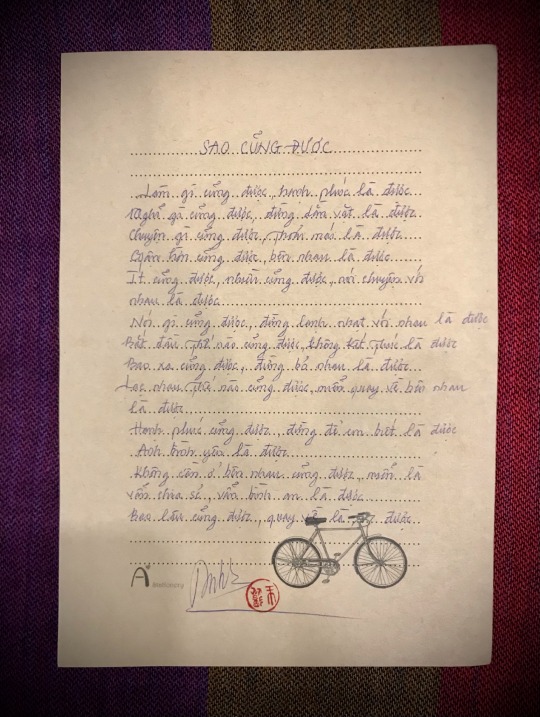 SAO CŨNG ĐƯỢC
Làm gì cũng được, hạnh phúc là được
Nghĩ gì cũng được, đừng dằn vặt là được
Chuyện gì cũng được, thoải mái là được
Giận hờn cũng được, bên nhau là được
Ít cũng được, nhiều cũng được, nói chuyện với
nhau là được
Nói gì cũng được, đừng lạnh nhạt với nhau là được
Bắt đầu thế nào cũng được, không kết thúc là được
Bao xa cũng được, đừng bỏ nhau là được
Lạc nhau thế nào cũng được, muốn quay về bên nhau
là được
Hạnh phúc cũng được, đừng để em biết là được
Anh bình yên là được
Không cần ở bên nhau cũng được, miễn là
vẫn chia sẻ, vẫn bình an là được
Bao lâu cũng được, quay về là được